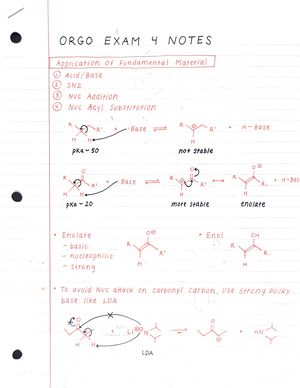 ORGO EXAM 4 NOTES
Application of Fundamental Material
① Acid/Base
② SN2
③ Nuc Addition
④ Nuc Acyl Substitution
R R' H H + :Base ⇌ R ⊖ R' H + H-Base
pKa~50 not stable
R O R' H H + :Base ⇌ R ⊖ O R' H ↔ R O⊖ R' H + H-Bas
pKa~20 more stable enolate
• Enolate
- basic
- nucleophilic
- strong
R O⊖ R' H
• Enol
R OH R' H
• To avoid Nuc attack on carbonyl carbon, use strong bulky
base like LDA
O H H + Li⊕ ⊖N ⇌ O ⊖ HN
LDA